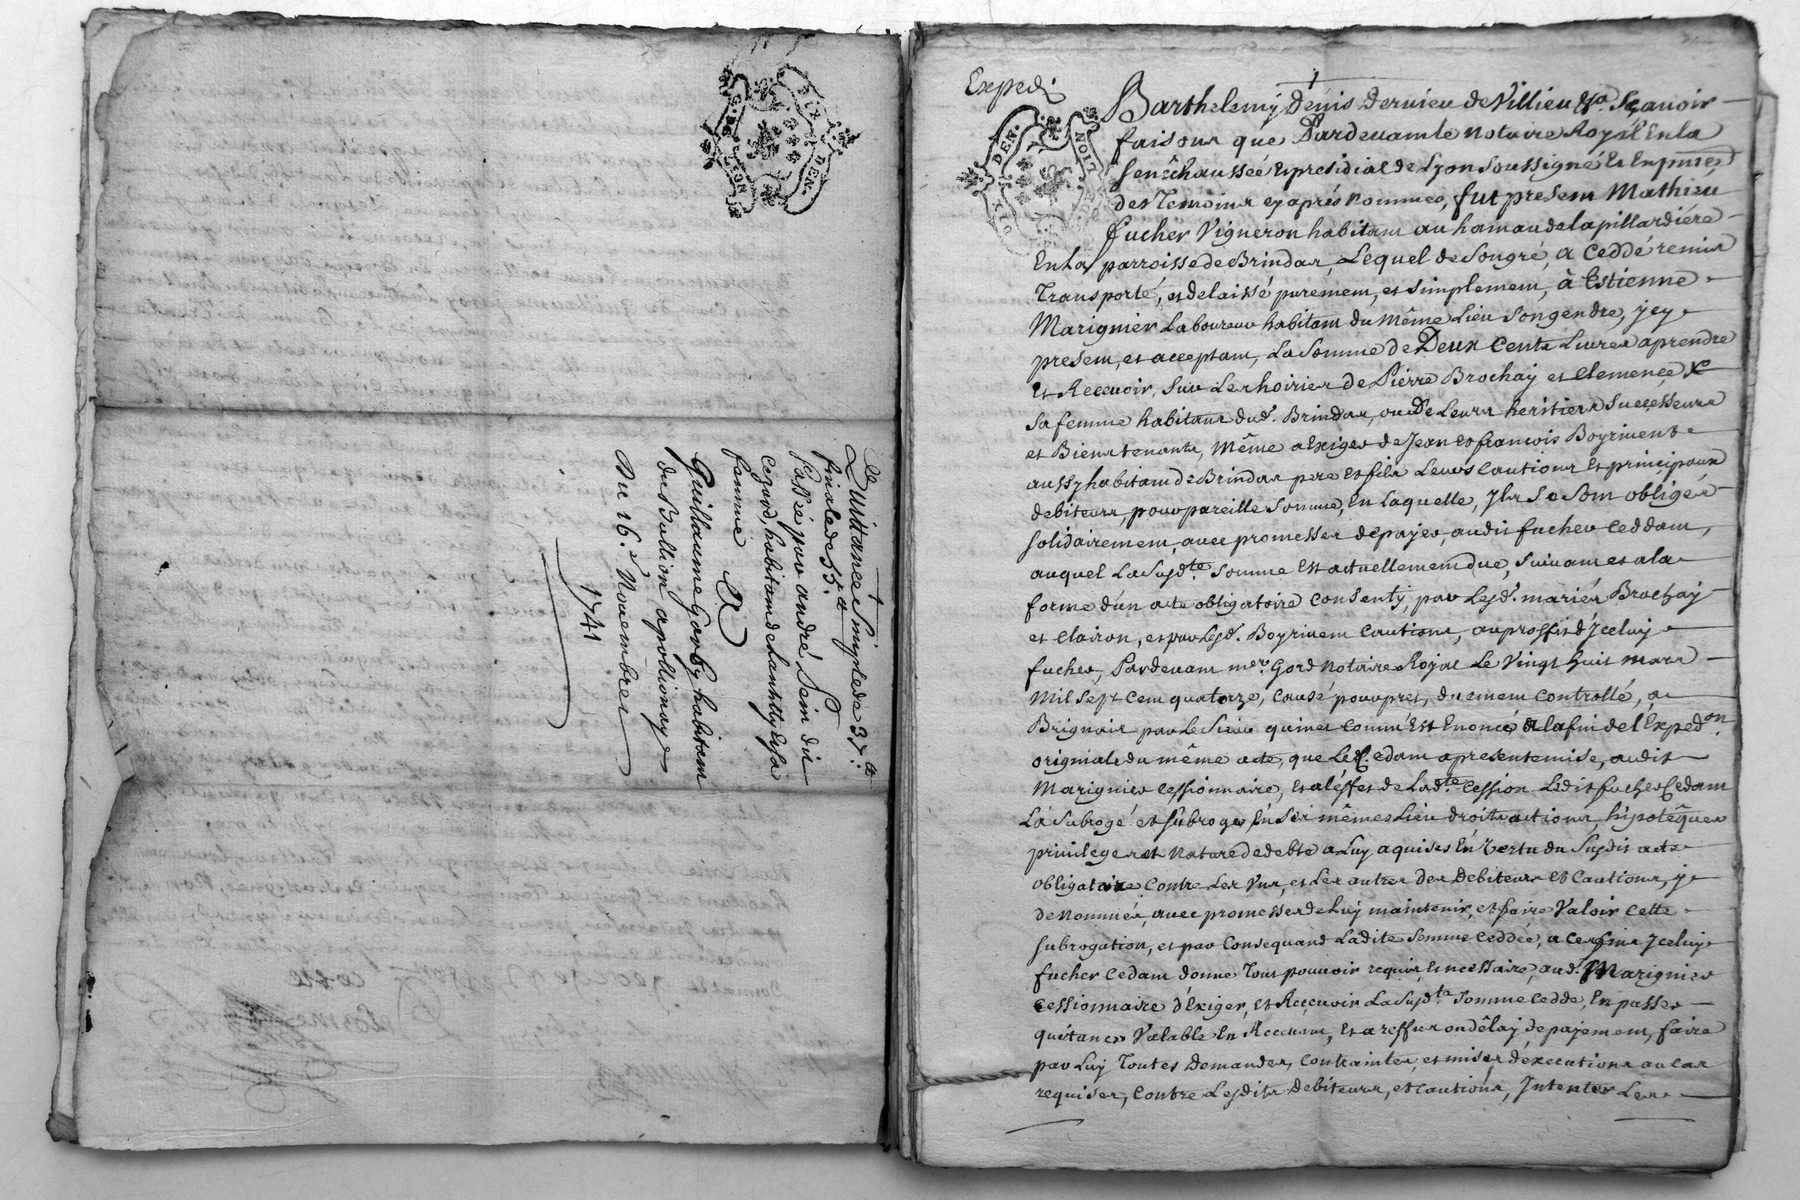 Quittance simple de 37.#
finale de 55.#
passé par andré
habitant de Lantilly Et sa
femme
A
Guillaume Gonby habitant
du Bullion apollionay
Du 16.e Novembre
1741
GEN. LION
DIX DEN.
Expedi
DIX DEN.
LION
Barthelemy Denis Dervieu de Villieu &a. Sçavoir
faisons que Pardevant le Notaire Royal En la
senêchaussée Et presidial de Lyon soussigné Et En pnce
des Temoins cy après Nommes, fut present Mathieu
fucher Vigneron habitant au hamau de la pillardiére
En la parroisse de Brindas, Lequel de son gré, a Ceddé remis
Transporté, et delaissé purement, et simplement, à Estienne
Marignier Laboureur habitant du Même Lieu son gendre, jcy
present, et acceptant, La somme de Deux Cents Livres aprendre
Et Recevoir, sur Les hoiries de Pierre Brochay et Clemençe x
sa femme habitans dud. Brindas, ou de Leurs heritiers successeurs
et Bienstenants, Même a Exiger de Jean Et francois Boyrivent
aussy habitans de Brindas pere Et fils Leurs Cautions Et principaux
debiteurs pour pareille somme, En Laquelle, Jls se sont obligés
solidairement, avec promesses de payer, audit fucher Ceddant,
auquel La susd.te somme Est actuellement due, suivant et a la
forme d'un acte obligatoire Consenty, par Lesd. mariés Brochay
et Clairon, et par Lesd. Boyrivent Cautions, au proffit d'Jceluy
fucher, Pardevant me. Gord Notaire Royal Le Vingt huit mars
Mil Sept Cent quatorze, Causé pour pret, duement Controllé, a
Brignais par Le Sieur quinet comme Est Enoncé a la fin de l'Exped.on
originale du même acte, que Led. Cedant apresent remise, audit
Marignier Cessionnaire, Et a l'éffet de Lad.te Cession Ledit fucher Cedant
La subrogé et subroge En ses mêmes Lieu droits actions, hipotêques
privileges et Nature de debte a Luy aquises En Vertu du susdit acte
obligatoire Contre Les Uns, et Les autres des Debiteurs Et Cautions, y
denommés, avec promesses de Luy maintenir, et faire Valoir Cette
subrogation, et par Consequand Ladite somme Ceddée, a Ces fins Jceluy
fucher Cedant donne Tout pouvoir requis, Et necessaire, aud. Marignier
Cessionnaire d'Exiger, et Reçevoir La susd.te somme Cedde, En passer
quitance Valable En Recevant, Et a reffus ou délay de payement, faire
par Luy Toutes Demandes, Contraintes, et mises d'éxecutions au cas
requises, Contre Lesdits Debiteurs, et Cautions, Intenter Les